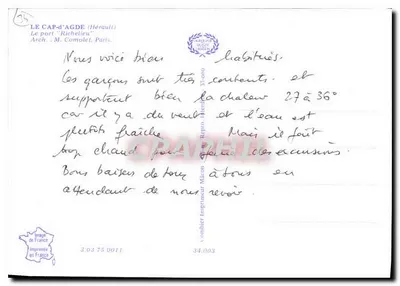 LE CAP-d'AGDE (Hérault)
Le port "Richelieu"
Arch. : M. Comolet, Paris.
Nous voici bien habitués.
Les garçons sont très contents et
supportent bien la chaleur 27 à 36°
car il y a du vent et l'eau est
plutôt fraîche. Mais il fait
trop chaud pour faire des excursions.
Bons baisers de tous à tous en
attendant de nous revoir.
CARTEL
Combier Imprimeur Mâcon
Image
de France
Imprimée
en France
34.003